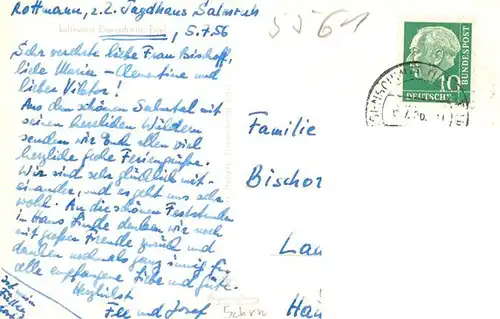 Rottmann, z.Z. Jagdhaus Salmruh
Luftkurort Eisenschmitt, Eifel
, 5.7.56
5561
Sehr verehrte liebe Frau Bischoff,
liebe Maria-Clementine und
lieber Viktor!
Aus dem schönen Salmtal mit
seinen herrlichen Wäldern
senden wir Euch allen viel
herzliche frohe Feriengrüße.
Wir sind sehr glücklich mit-
einander, und es geht uns sehr
wohl. An die schönen Feststunden
in Haus denken wir noch
mit großer Freude zurück und
danken nochmals ganz innig für
alle empfangene Liebe und Güte.
Herzlichst
Elle und Josef
10
DEUTSCHE
BUNDESPOST
Familie
Bischor
Lau
Hau